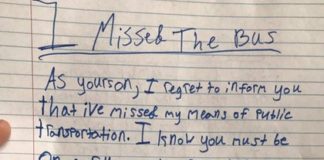 I Missed The Bus
As yourson, I regret to inform you
that ive missed my means of Public
transportation. I know you must be